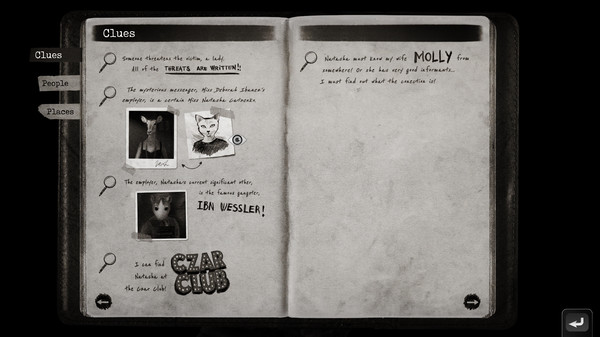 Clues
Clues
People
Places
Someone threatens the victim, a lady.
All of the THREATS ARE WRITTEN!!
The mysterious messenger, Miss Deborah Ibanez's
employer, is a certain Miss Natasha
The employer, Natasha's current significant other,
is the famous gangster,
IBN WESSLER!
I can find
Natasha at
the Czar Club!
CZAR
CLUB
Natasha must know my wife MOLLY from
somewhere! Or she has very good informants...
I must find out what the conection is!